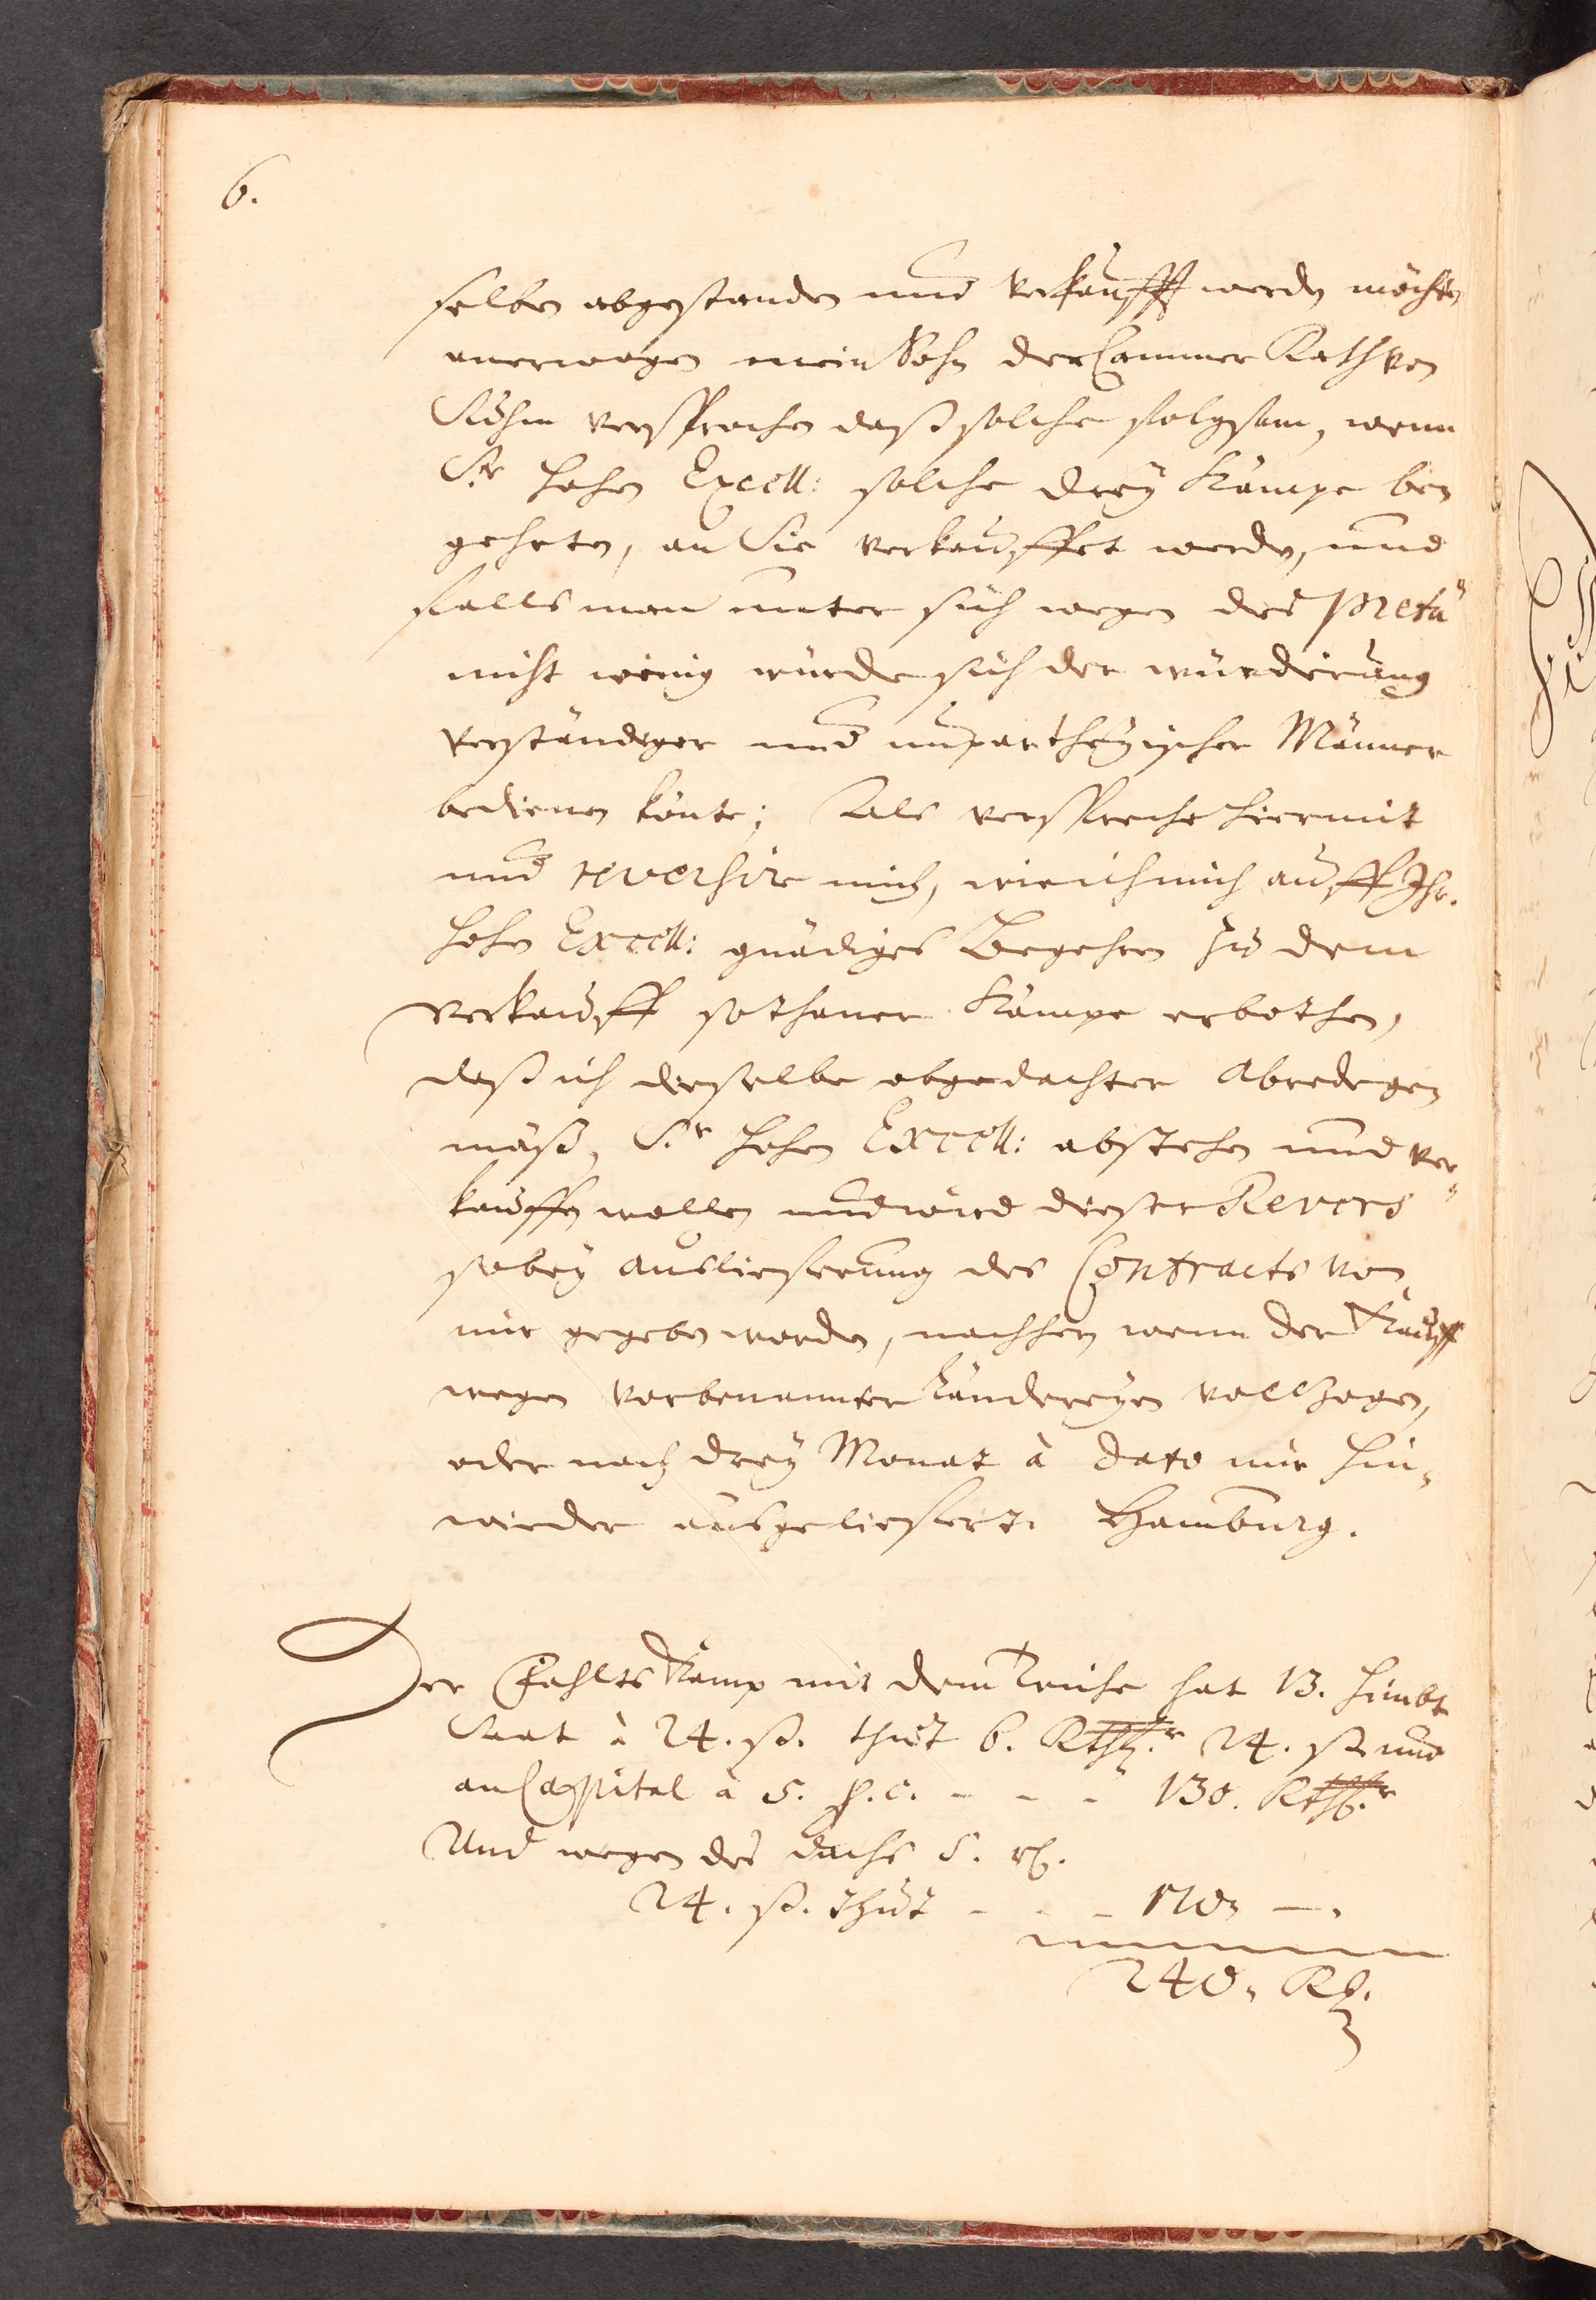 6.
selben abgestanden und verkaufft werden möchten
anerwogen mein Sohn der Cammer Rath von
versprochen daß solche folgsam, wenn
Sr. hohen Excell: solche drey Kämpe be,
gehrten, an Sie verkauffet werden, und
falls man unter sich wegen des pretii
nicht einig würde sich der würderung
verständiger und unpartheyischer Männer
bedienen könte; Als verspreche hiermit
und reversire mich, wie ich mich auff Ihr.
hohen Excell: gnädiges Begehren zu dem
verkauff sothaner Kämpe erbothen,
daß ich dieselbe obgedachter abrede ge,
mäß, Sr. hohen Excell: abstehen und ver,
kauffen wollen und wird dieser Revers
so bey auslieferung des Contracts von
mir gegeben worden, nachhero wenn der Kauff
wegen vorbenannter Ländereyen vollzogen,
oder nach drey Monat à dato mir hin,
wieder ausgeliefert. Hamburg.
Der Kamp mit dem Teiche hat 13. Himbt
Saat à 24. ß. thut 6. Rthlr. 24. ß und
an Cappital à 5. p. c. - - - 130. Rthlr.
Und wegen des 5. rth.
24. ß. thut - - - 110, —.
240. Rth.